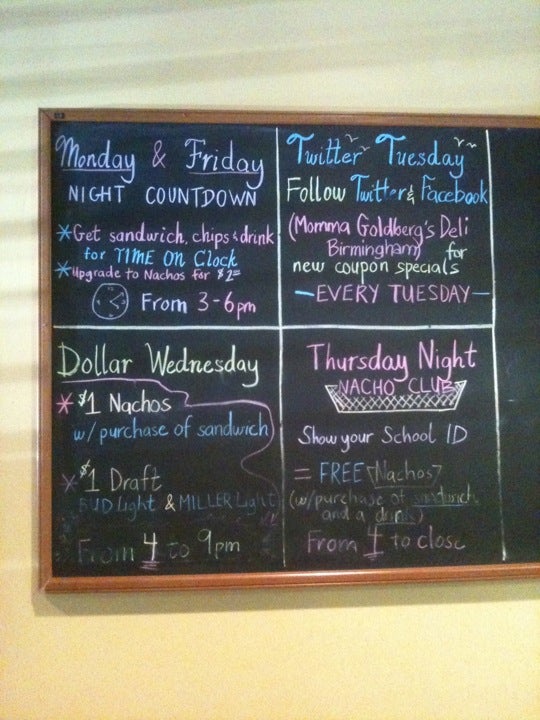 Monday & Friday
NIGHT COUNTDOWN
* Get sandwich, chips & drink
for TIME ON Clock
* Upgrade to Nachos for $2⁰⁰
From 3-6pm
Twitter Tuesday
Follow Twitter & Facebook
(Momma Goldberg's Deli
Birmingham) for
new coupon specials
— EVERY TUESDAY —
Dollar Wednesday
* $1 Nachos
w/ purchase of sandwich
* $1 Draft
BUD Light & MILLER Light
From 4 to 9pm
Thursday Night
NACHO CLUB
Show your School ID
= FREE Nachos
(w/purchase of sandwich
and a drink)
From 4 to close